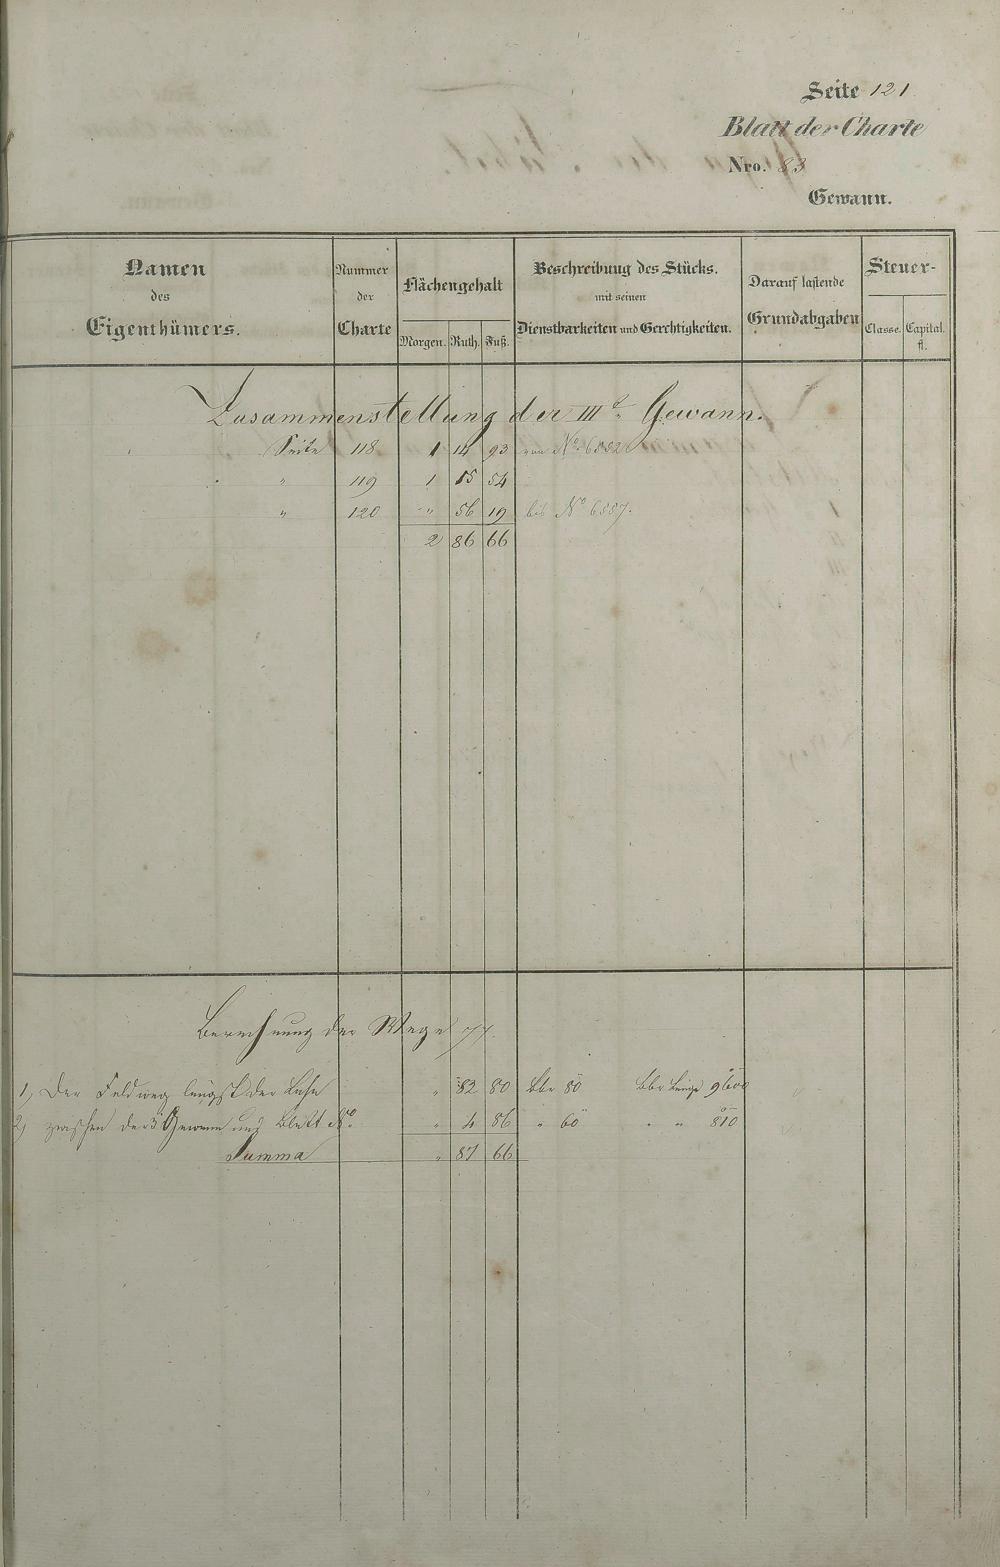 Seite 121
Blatt der Charte
Nro. 83
Gewann.
Namen des Eigenthümers.
Nummer der Charte
Flächengehalt
Morgen. Ruth. Fuß.
Beschreibung des Stücks.
mit seinen
Dienstbarkeiten und Gerechtigkeiten.
Darauf lastende
Grundabgaben
Steuer-
Classe. Capital.
fl.
Zusammenstellung der III t. Gewann.
Seite 118 1 14 93 von No. 6552
" 119 1 15 54
" 120 " 56 19 bis No 6557.
2 86 66
Berechnung der Wege
1, Der Feldweg längst der " 82 80 80 9600
2, zwischen der 3 Gewann und Blatt No. " 4 86 " 60 " " 810
Summa " 87 66